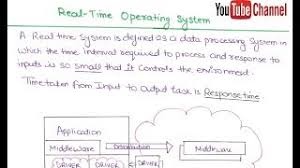 YouTube Channel
Real-Time Operating System
A Real time System is defined as a data processing System in
which the time interval required to process and response to
inputs is so small that it controls the environment.
Time taken from Input to Output task is Response time
Application
Middleware
Distribution
Middleware
DRIVER DRIVER DRIVER